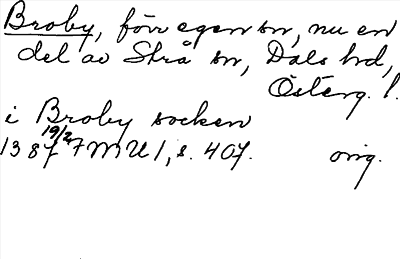 Broby, förr egen sn, nu en
del av Strå sn, Dals hd,
Österg. l.
i Broby socken
1387 19/2 FMU 1, s. 407. orig.